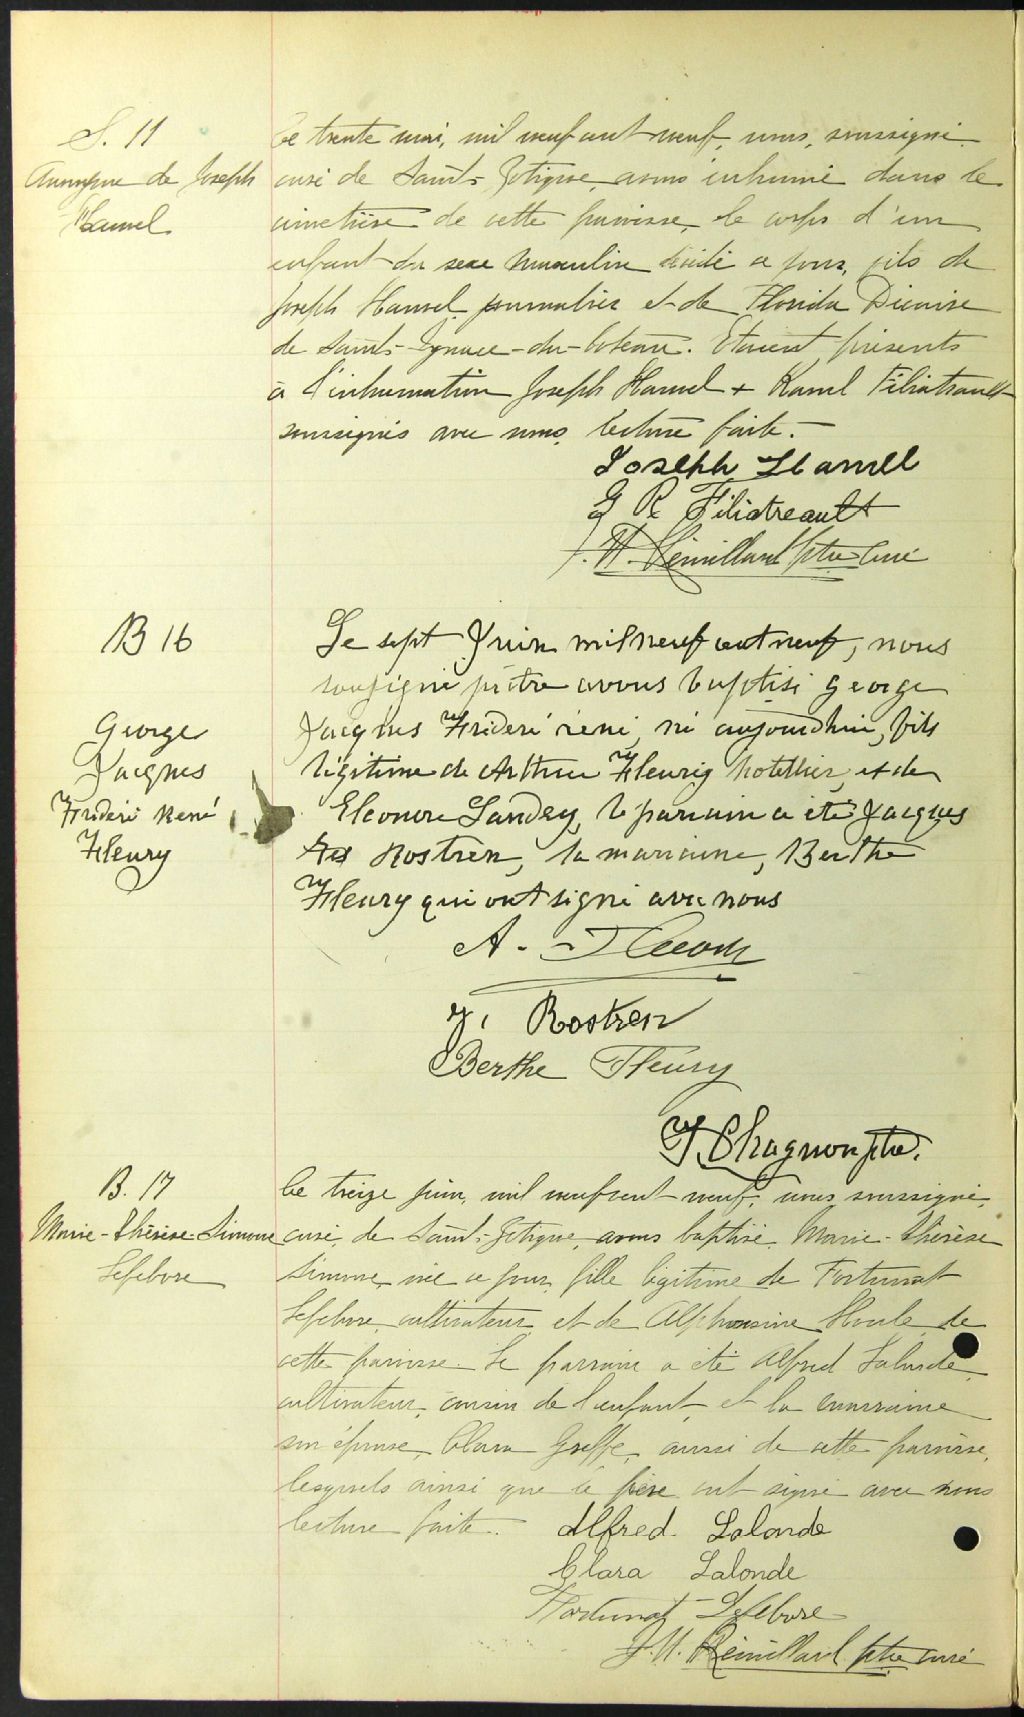 S. 11
Anonyme de Joseph
Hamel
Le trente mai, mil neuf cent neuf, nous, soussigné
curé de Saint-Zotique, avons inhumé dans le
cimetière de cette paroisse, le corps d'un
enfant du sexe masculin décédé ce jour, fils de
Joseph Hamel journalier et de Florida Dicaire
de Saint-Ignace-du-Coteau. Etaient présents
à l'inhumation Joseph Hamel + Filiatrault
soussignés avec nous, lecture faite.-
Joseph Hamel
G R. Filiatreault
J. M. Rémillard ptre curé
B 16
George
Jacques
Fréderi René
Fleury
Le sept Juin mil neuf cent neuf, nous
soussigné prêtre avons baptisé George
Jacques Fréderi réné, né aujourdhui, fils
légitime de Arthur Fleury hotellier, et de
Eleonore Landry, le parrain a été Jacques
Rostren, la marraine, Berthe
Fleury qui ont signé avec nous
A. Fleury
J. Rostren
Berthe Fleury
J Chagnon ptre.
B. 17
Marie-Thérèse-Simone
Lefebvre
Le treize juin, mil neuf cent neuf, nous soussigné,
curé, de Saint-Zotique, avons baptisé, Marie-Thérèse
Simone, née ce jour, fille légitime de Fortunat
Lefebvre, cultivateur, et de Alphonsine Houle, de
cette paroisse. Le parrain a été Alfred Lalonde,
cultivateur, cousin de l'enfant, et la marraine
son épouse, Clara Greffe, aussi de cette paroisse,
lesquels ainsi que le père ont signé avec nous
lecture faite.
Alfred. Lalonde
Clara Lalonde
Fortunat Lefebvre
J. M. Rémillard ptre curé